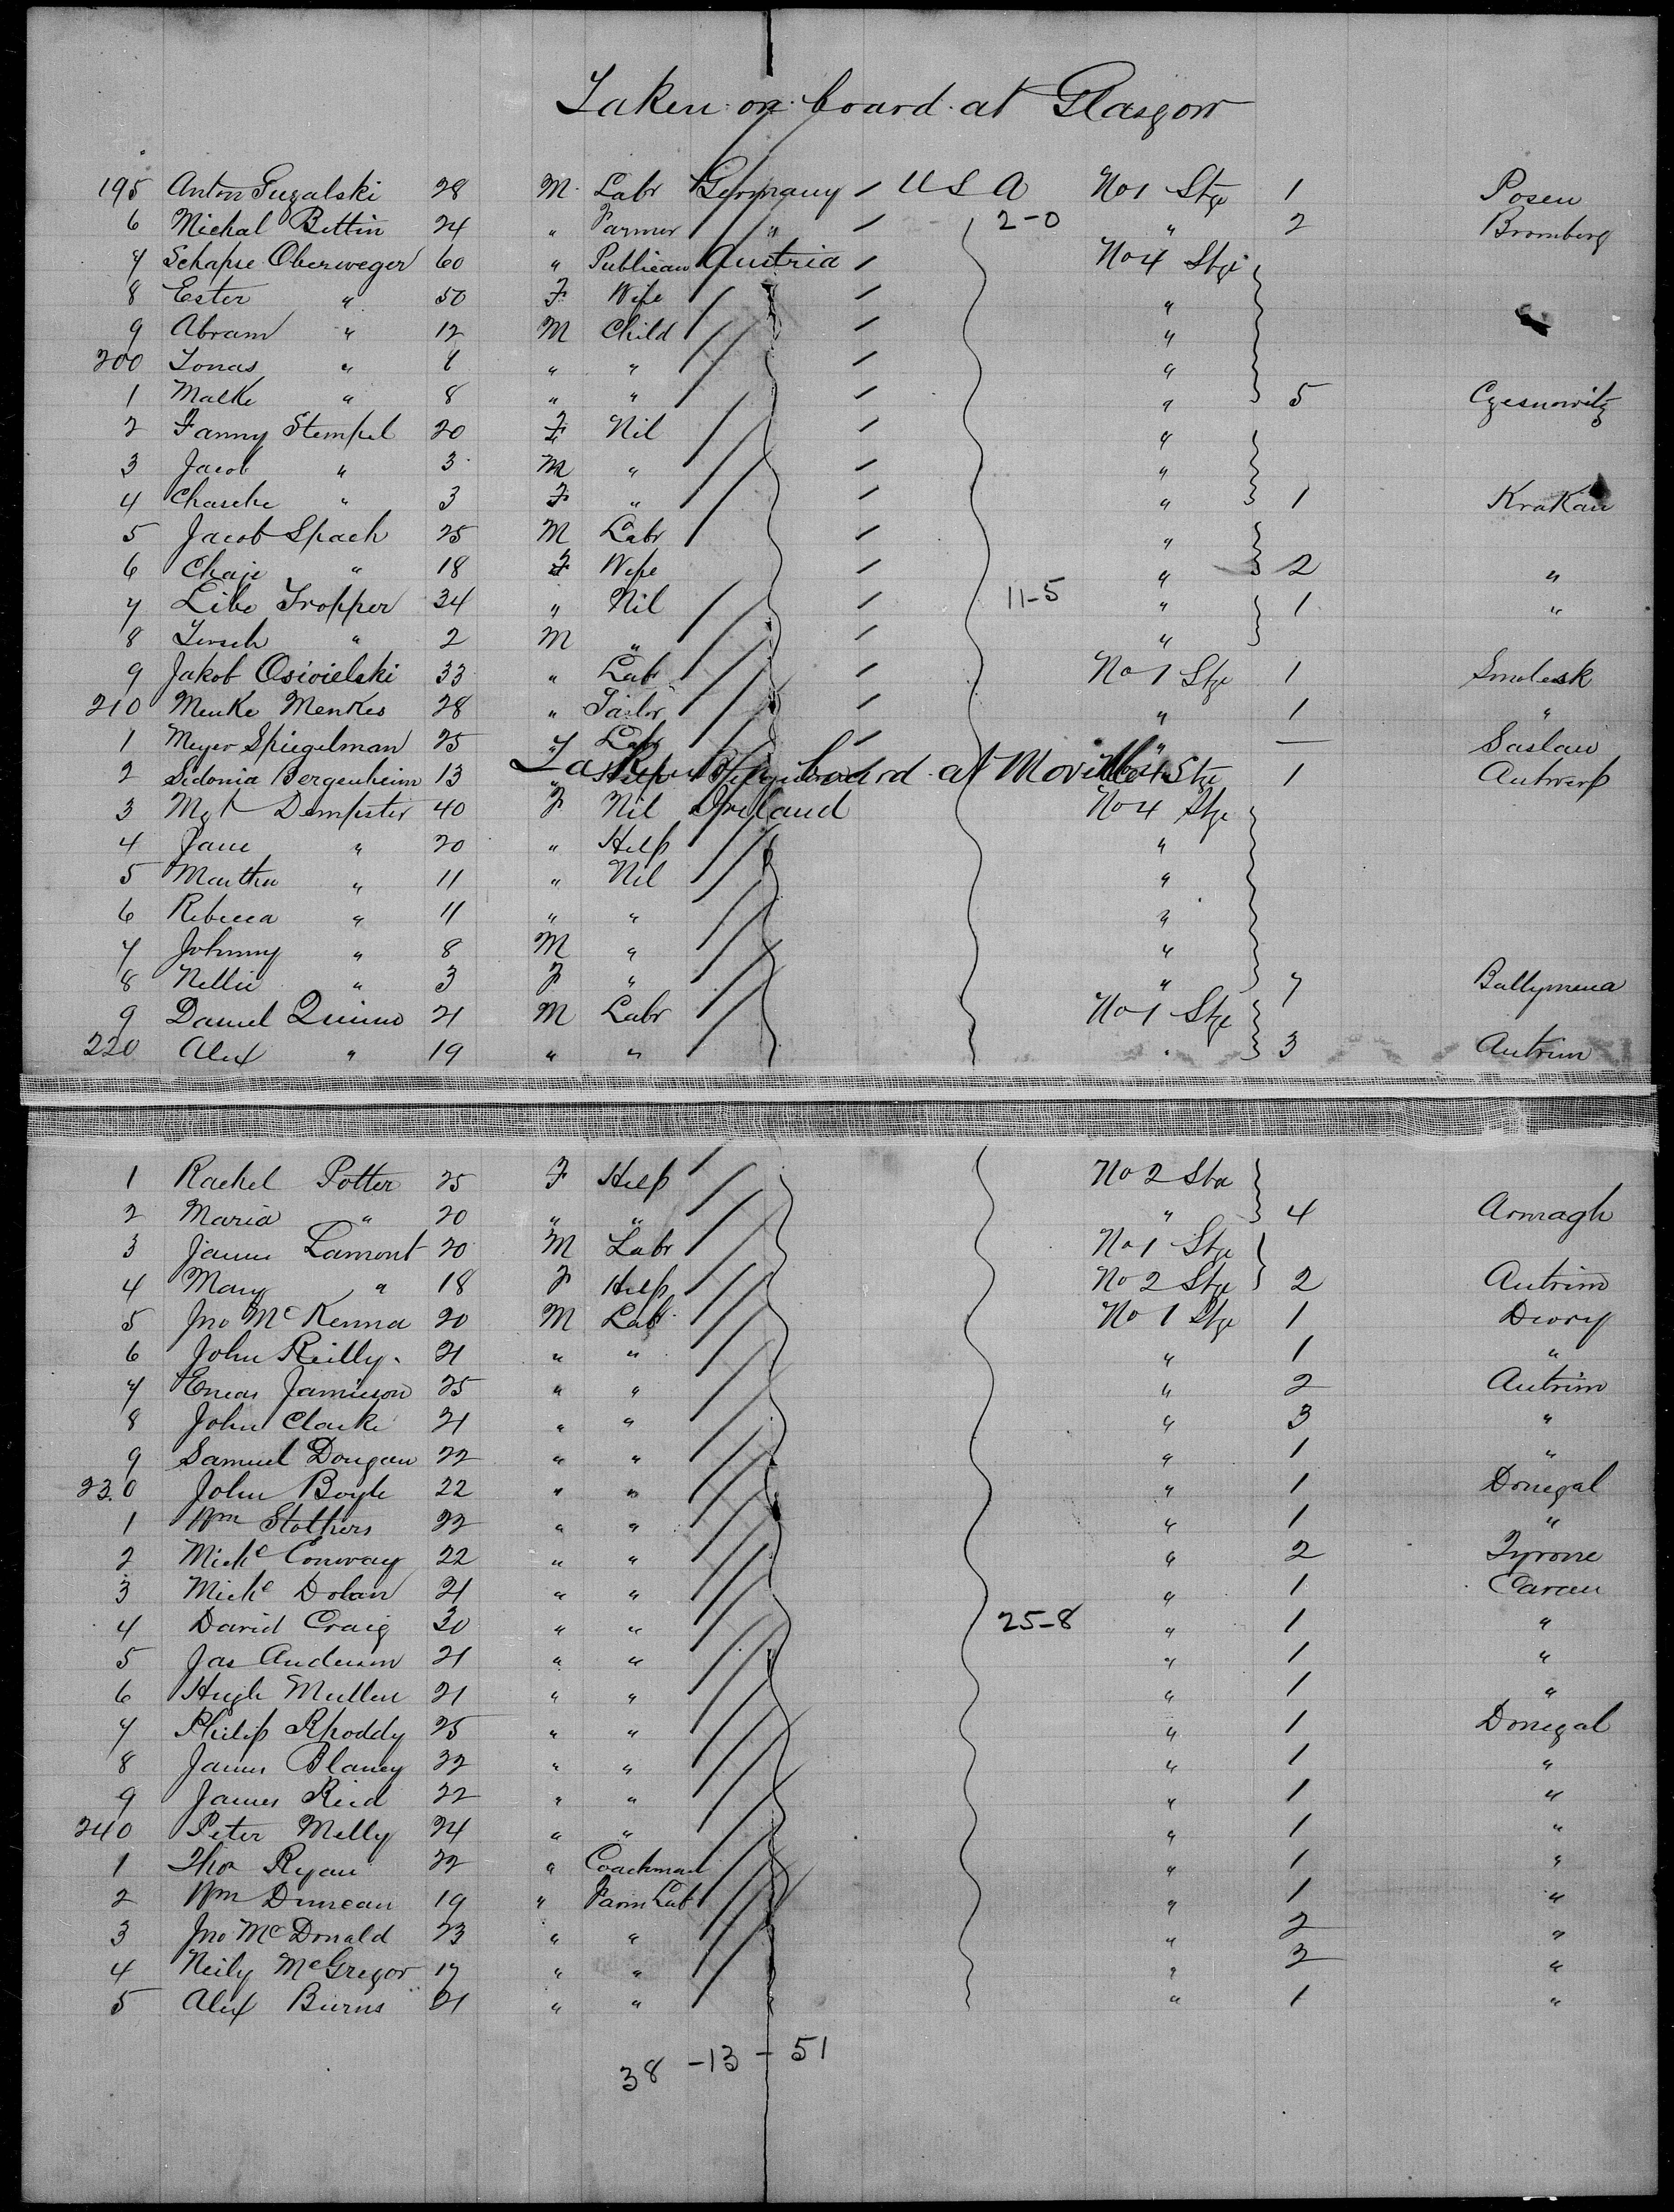 Taken on board at Glasgow
195 Anton Guzalski 28 M Labr Germany / U S A No 1 Stge 1 Posen
6 Michal Bettin 24 " Farmer " / 2-0 " 2 Bromberg
7 Schapse Oberweger 60 " Publican Austria / No 4 Stge
8 Ester " 50 F Wife / "
9 Abram " 12 M Child / "
200 Jonas " 8 " " / "
1 Malke " 8 " " / " 5 Czesnowitz
2 Fanny Stempel 20 F Nil / "
3 Jacob " 3 M " / "
4 Chasche " 3 F " / " 1 Krakau
5 Jacob Spach 25 M Labr / "
6 Chaje " 18 F Wife / " 2 "
7 Libe Tropper 34 " Nil / 11-5 " 1 "
8 " 2 M " / "
9 Jakob Osivielski 33 " Labr / No 1 Stge 1 Smolesk
210 Menke Menkes 28 " Tailor / " 1 "
1 Meyer Spiegelman 25 " Labr / " — Saslau
Taken on board at Moville
2 Sidonia Bergenheim 13 " Stge 1 Antwerp
3 Mgt Dempster 40 F Nil Ireland No 4 Stge
4 Jane " 20 " Help "
5 Martha " 11 " Nil "
6 Rebecca " 11 " " "
7 Johnny " 8 M " "
8 Nellie " 3 F " " 7 Ballymena
9 Daniel Quinn 21 M Labr No 1 Stge
220 Alex " 19 " " " 3 Antrim
1 Rachel Potter 25 F Help No 2 Stge
2 Maria " 20 " " " 4 Armagh
3 James Lamont 20 M Labr No 1 Stge
4 Mary " 18 F Help No 2 Stge 2 Antrim
5 Jno McKenna 20 M Labr No 1 Stge 1 Derry
6 John Reilly 21 " " " 1 "
7 Eneas Jamieson 25 " " " 2 Antrim
8 John Clarke 21 " " " 3 "
9 Samuel Dougan 22 " " " 1 "
230 John Boyle 22 " " " 1 Donegal
1 Wm Stothers 22 " " " 1 "
2 Michl Conway 22 " " " 2 Tyrone
3 Michl Dolan 21 " " " 1 Cavan
4 David Craig 30 " " 25-8 " 1 "
5 Jas Anderson 21 " " " 1 "
6 Hugh Mullen 21 " " " 1 "
7 Philip Rhoddy 25 " " " 1 Donegal
8 James Blaney 32 " " " 1 "
9 James Reid 22 " " " 1 "
240 Peter Melly 24 " " " 1 "
1 Thos Ryan 22 " Coachman " 1 "
2 Wm Duncan 19 " Farm Lab " 1 "
3 Jno McDonald 23 " " " 2 "
4 Neily McGregor 17 " " " 2 "
5 Alex Burns 21 " " " 1 "
38 - 13 - 51